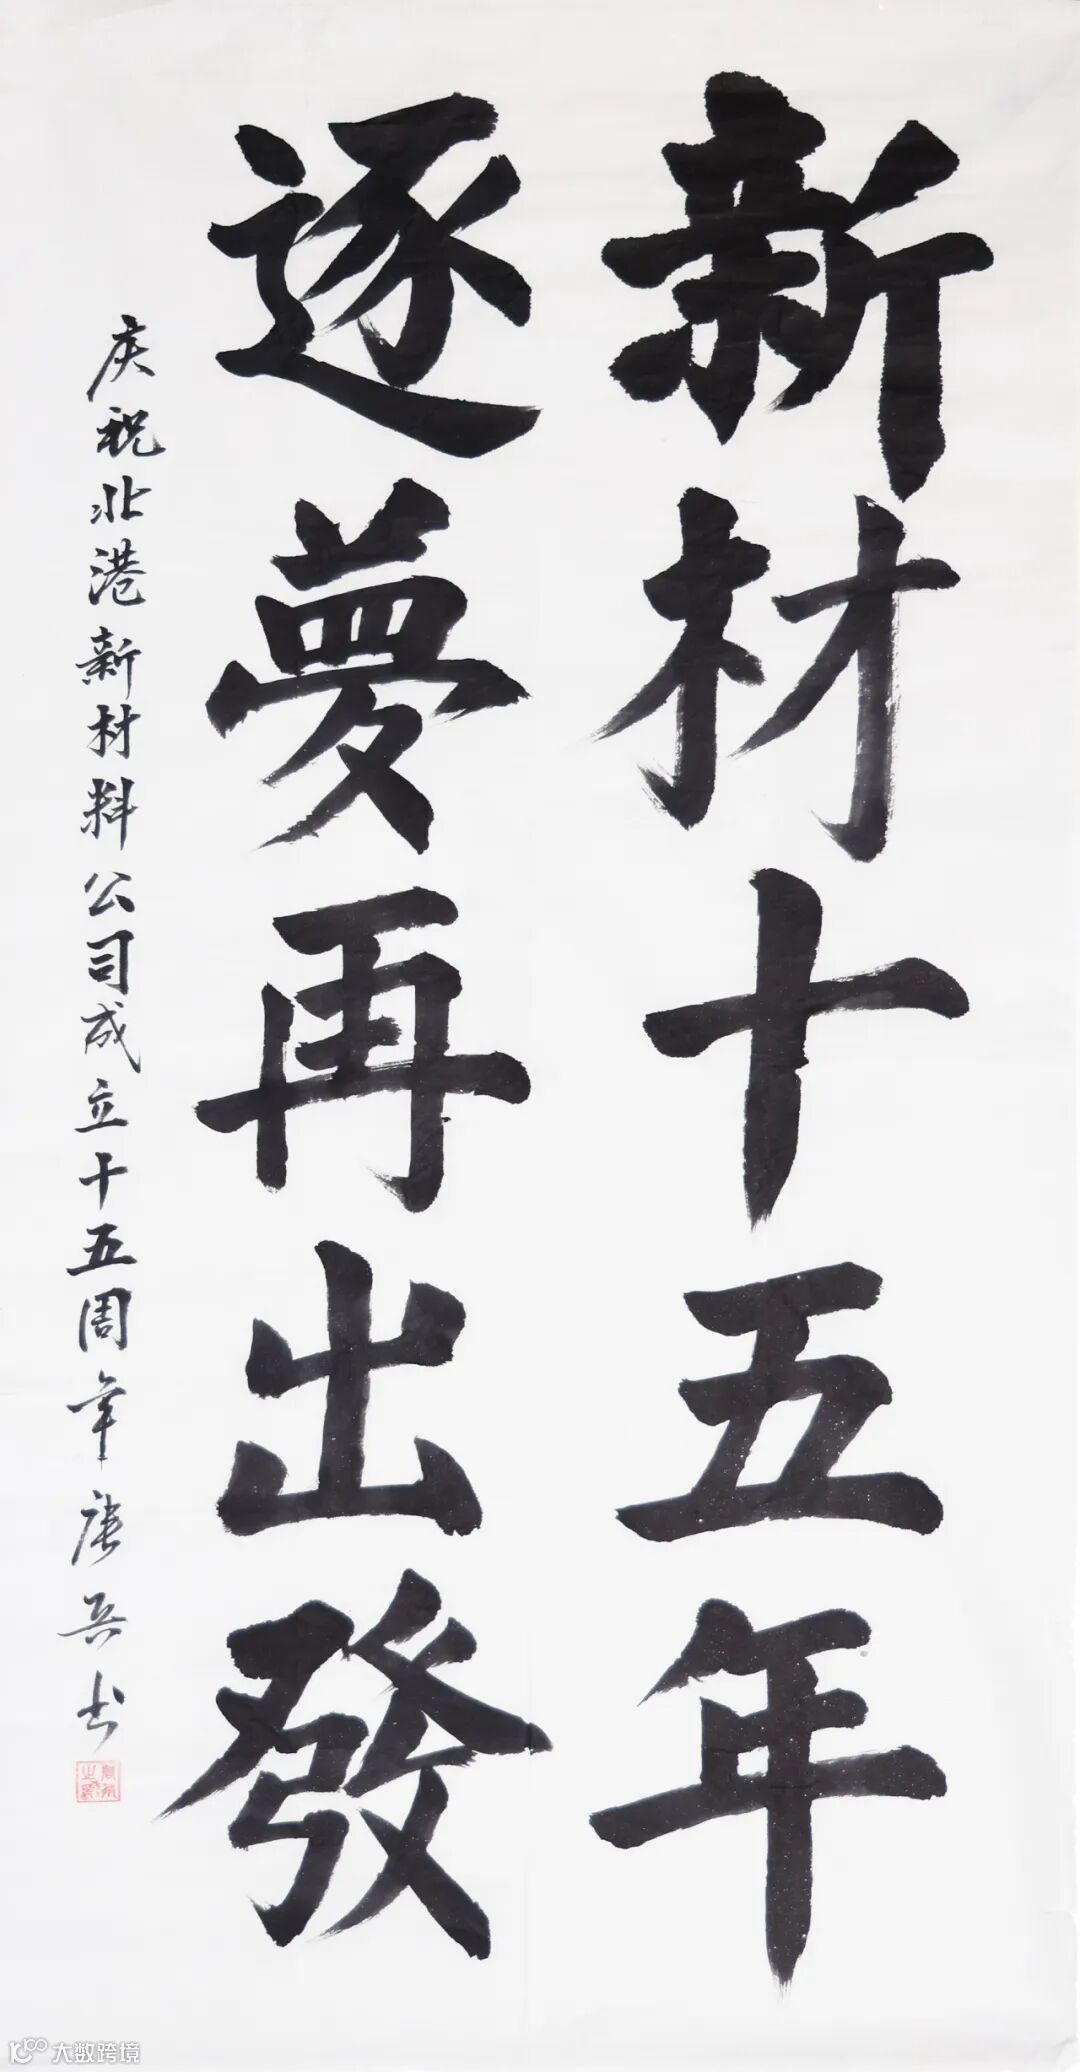 新材十五年
逐夢再出發
庆祝北港新材料公司成立十五周年唐兵书
大数跨境